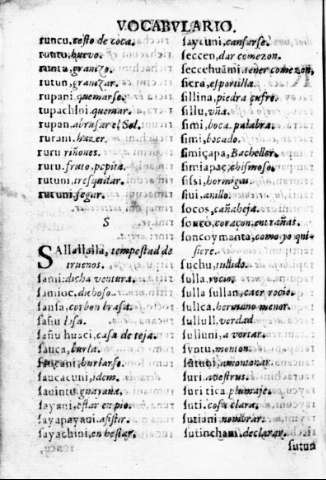 VOCABVLARIO.
runcu, cesto de coca.
ronto, huevo.
runtu, granizo.
rutun, granizar.
rupani, quemarse.
rupachini, quemar.
rupan, abrasar el Sol.
rurani, hazer.
ruru, riñones.
ruru, fruto, pepita.
rutuni, tresquilar.
rutuni, segar.
S
SAllallalla, tempestad de
truenos.
sami, dicha ventura.
samioc, dichoso.
sansa, carbon brasa.
sañu, losa.
sañu huaci, casa de teja.
sauca, burla.
saucani, burlarse.
saucacuni, idem.
sauintu, guayaua.
sayani, estar en pie.
sayapayani, assistir.
sayachini, enhestar.
saycuni, cansarse.
seccen, dar comezon.
seccehuãmi, tener comezon,
sicra, esportilla.
sillina, piedra çufre.
sillu, vña.
simi, boca, palabra.
simi, bocado.
simiçapa, Bachiller.
simiapac, chismoso.
sisi, hormigas.
siui, anillo.
socos, cañaheja.
sonco, coraçon, entrañas.
soncoymanta, como yo qui-
siere.
suchu, tullido.
sulla, rocio.
sulla sullan, caer rocio.
sullca, hermano menor.
sullull, verdad
sulluni, abortar.
suntu, monton.
suntuni, amontonar.
suri, avestruz.
suri tica, plumaje.
suti, cosa clara.
sutiani, nombrar.
sutincham, declarar.
sutun